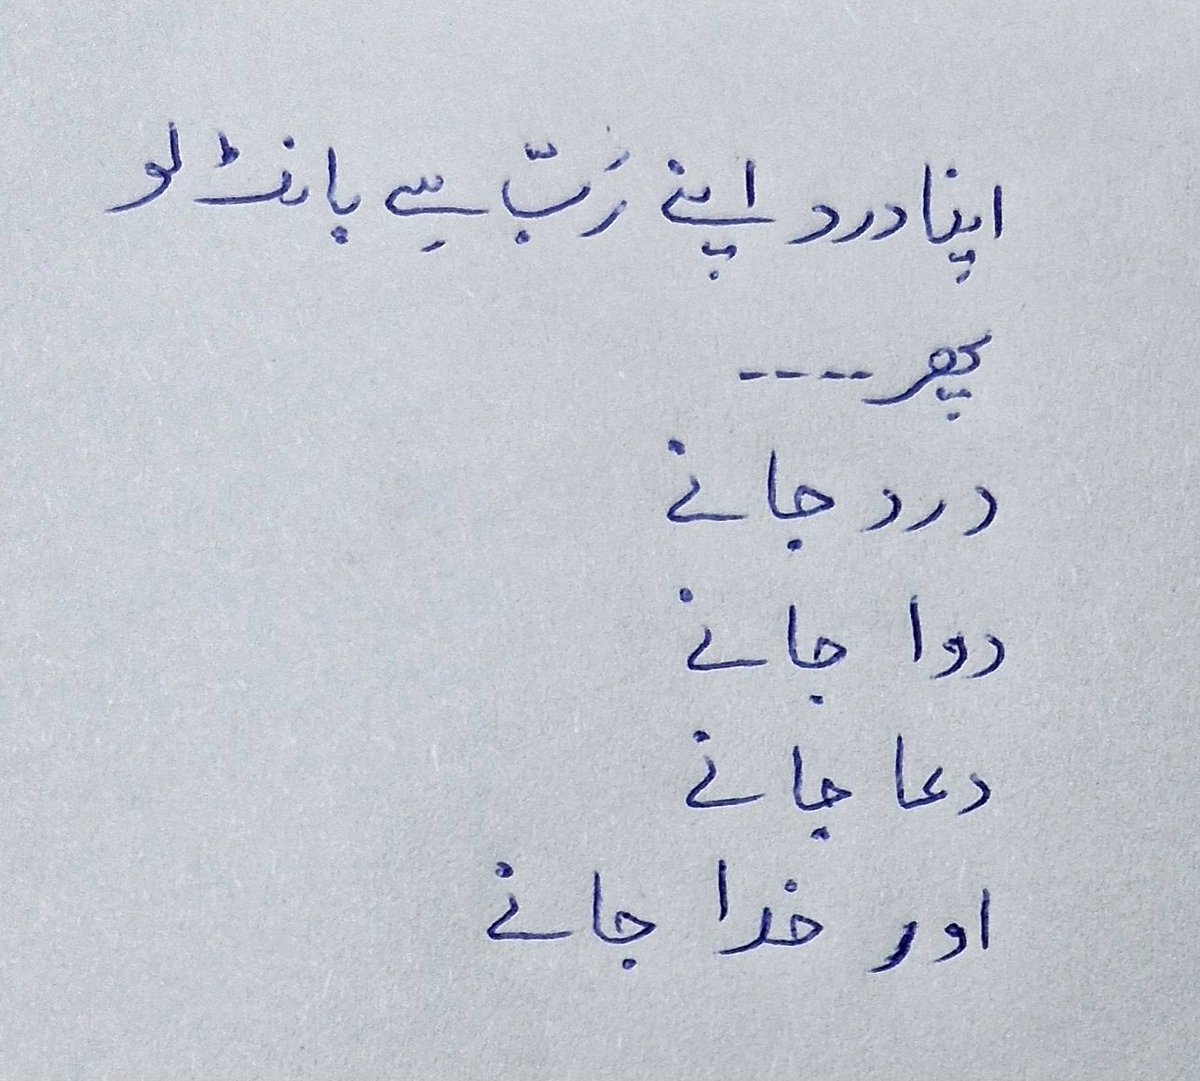 اپنا درد اپنے رَبّ سے بانٹ لو
پھر ----
درد جانے
دوا جانے
دعا جانے
اور خدا جانے